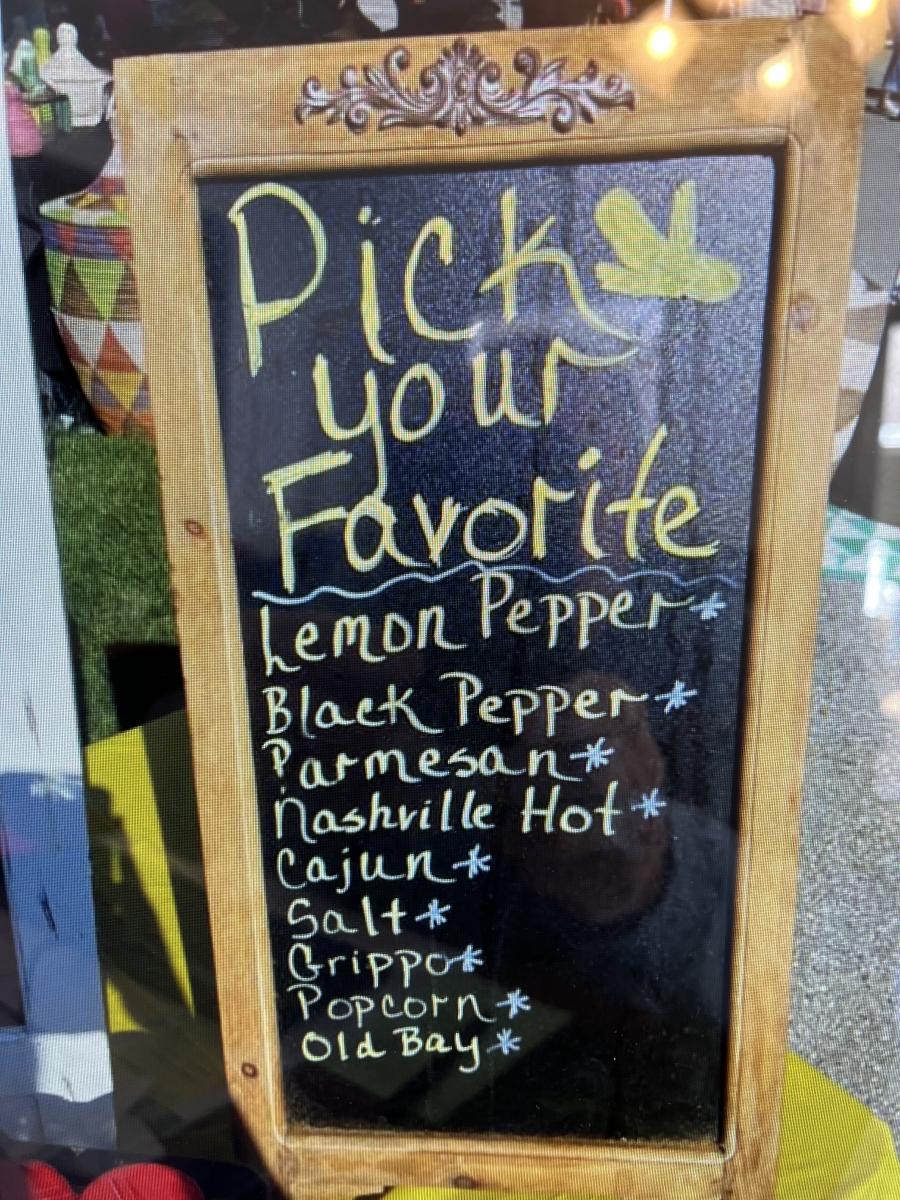 Pick
your
Favorite
Lemon Pepper*
Black Pepper*
Parmesan*
Nashville Hot*
Cajun*
Salt*
Grippo*
Popcorn*
Old Bay*